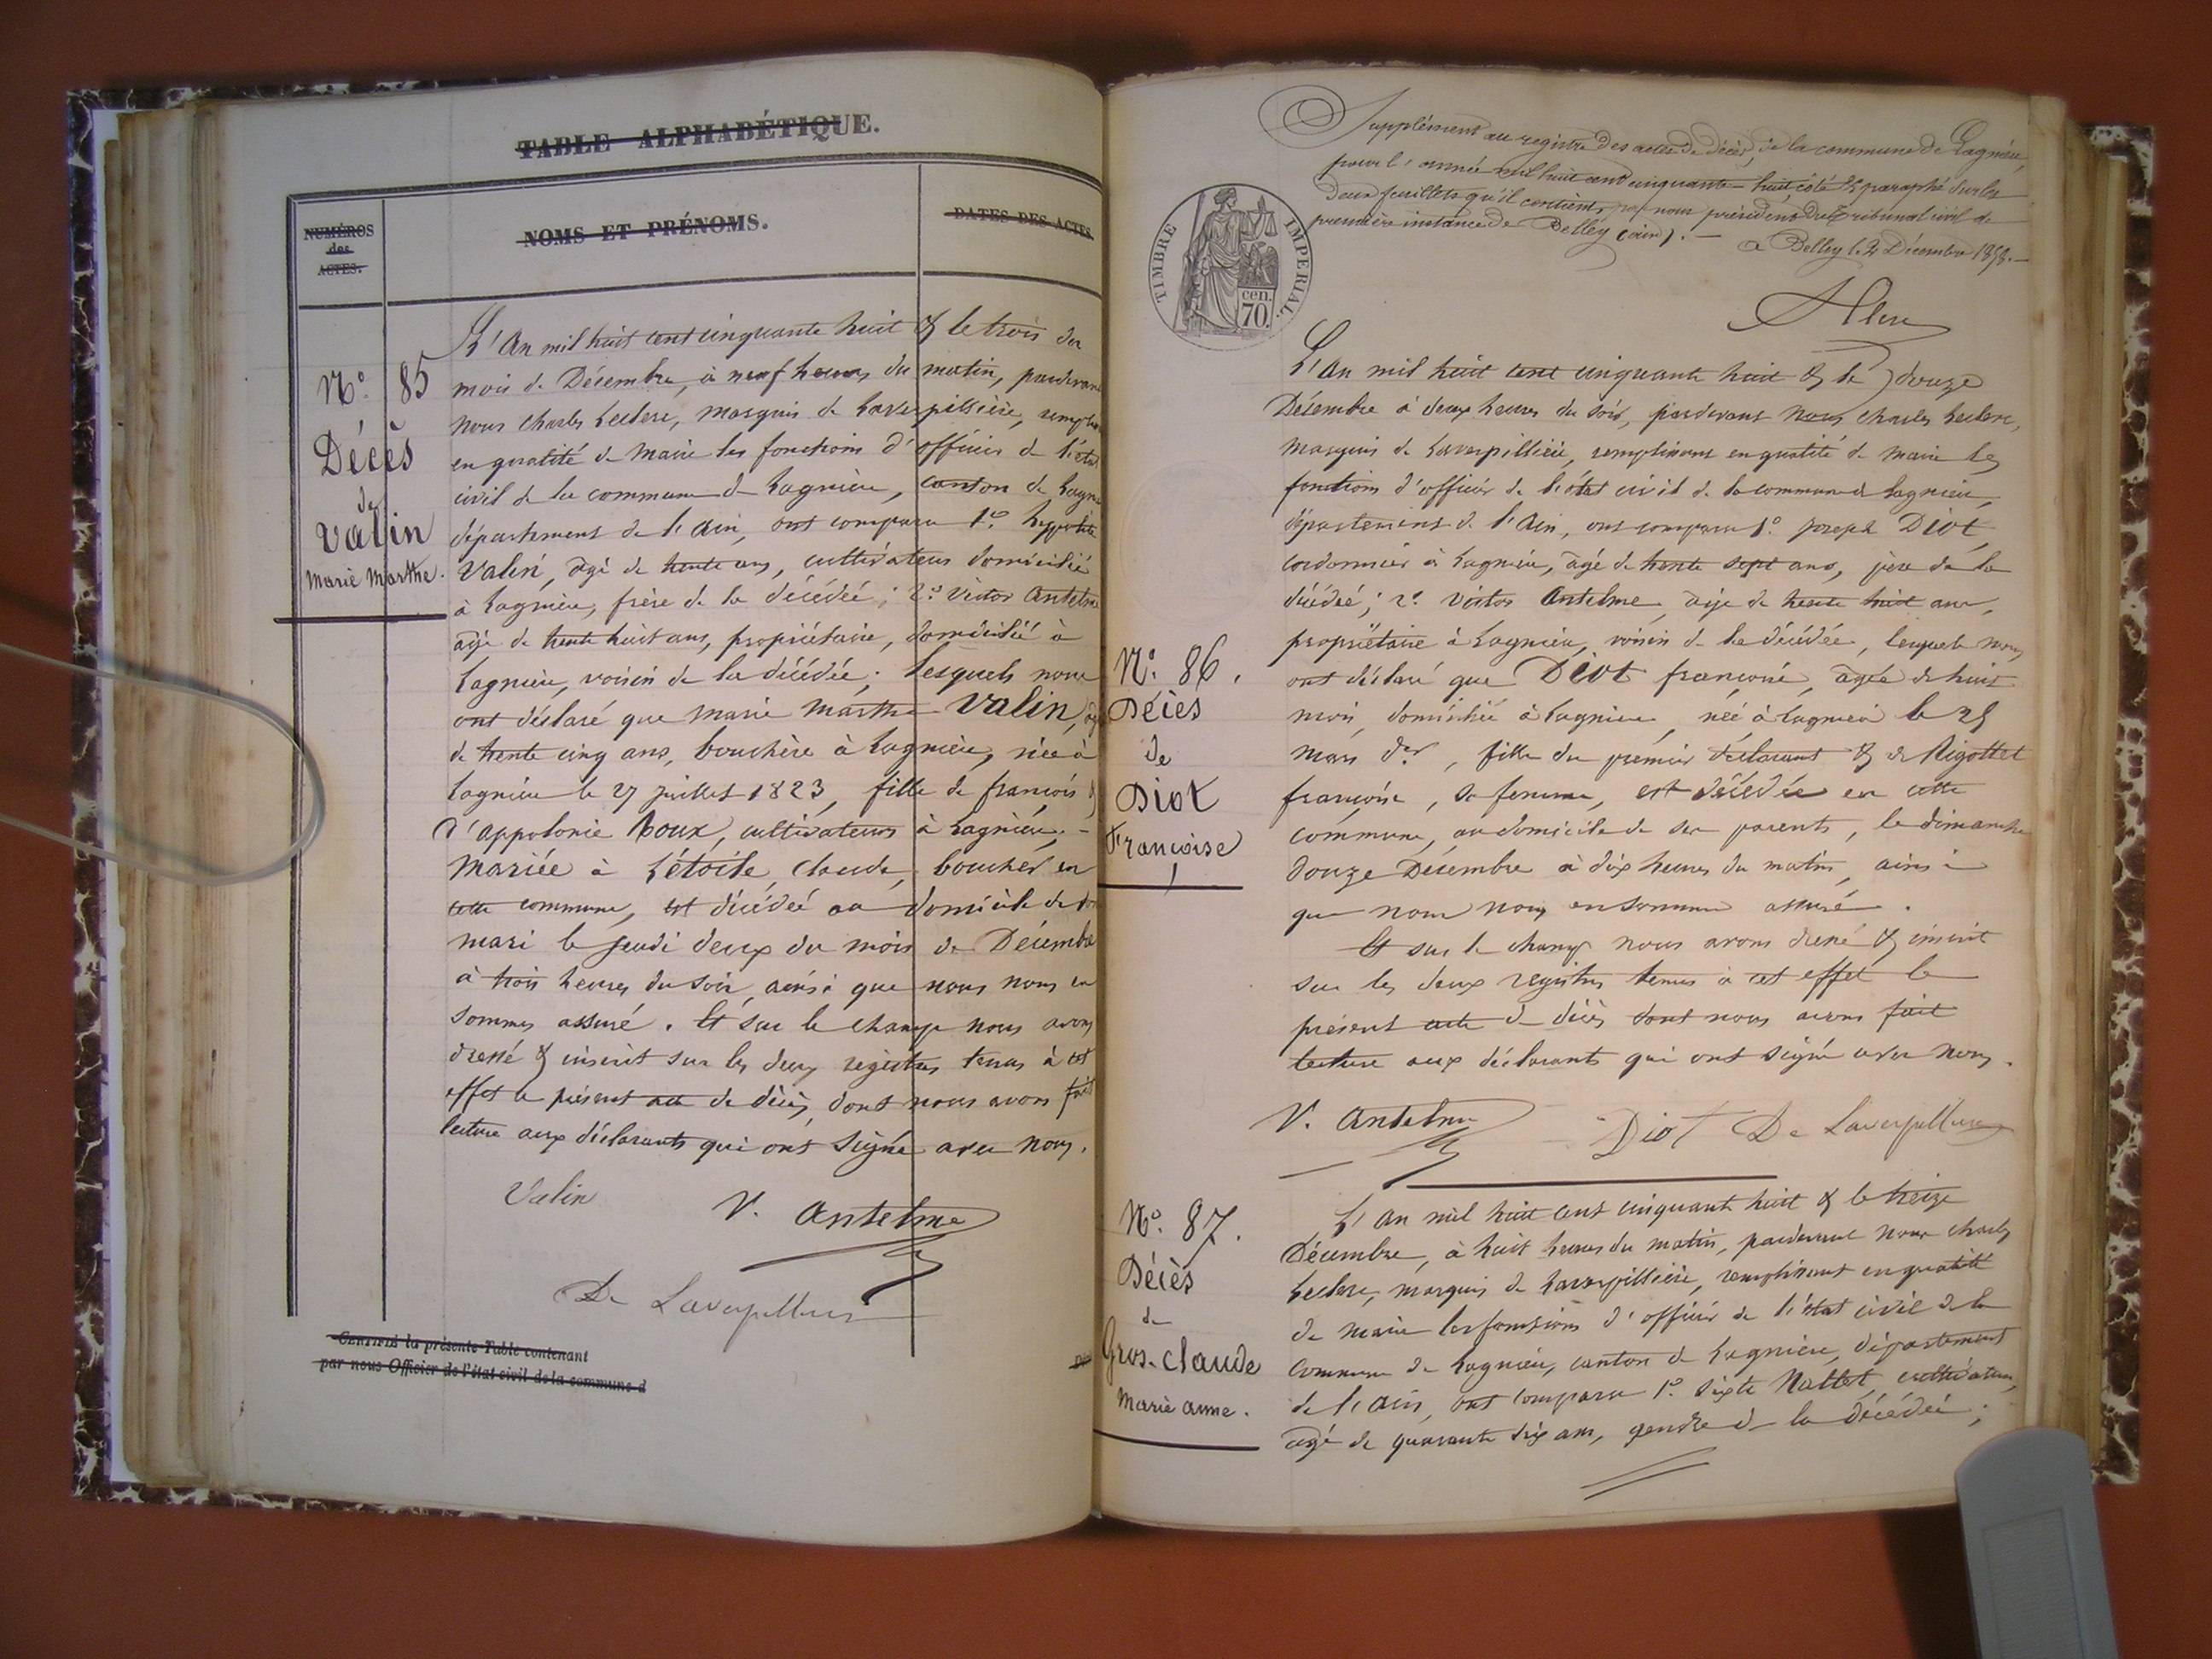 TABLE ALPHABÉTIQUE.
NUMÉROS
des
ACTES.
NOMS ET PRÉNOMS.
DATES DES ACTES
N° 85
Décès
de
Valin
Marie Marthe.
L'An mil huit cent cinquante huit & le trois du
mois de Décembre, à neuf heures du matin, pardevant
nous Charles Leclerc, marquis de Laverpillière, rempliss
en qualité de maire les fonctions d'officier de l'état
civil de la commune de Lagnieu, canton de Lagnieu
département de l'Ain, ont comparu 1° hyppolite
Valin, âgé de trente ans, cultivateur domicilié
à Lagnieu, frère de la décédée; 2° Victor Antelme
âgé de trente huit ans, propriétaire, domicilié à
Lagnieu, voisin de la décédée; lesquels nous
ont déclaré que marie marthe Valin, âgée
de trente cinq ans, bouchère à Lagnieu, née à
Lagnieu le 27 juillet 1823, fille de françois &
d'appolonie Roux, cultivateurs à Lagnieu. -
Mariée à Létoile, Claude, boucher en
cette commune, est décédée au domicile de son
mari le jeudi deux du mois de Décembre
à trois heures du soir, ainsi que nous nous en
sommes assuré. Et sur le champ nous avons
dressé & inscrit sur les deux registres tenus à cet
effet le présent acte de décès, dont nous avons fait
lecture aux déclarants qui ont signé avec nous.
Valin
V. Antelme
De Laverpilliere
Certifié la présente Table contenant
par nous Officier de l'état civil de la commune d
Supplément au registre des actes de décès, de la commune de Lagnieu,
pour l'année mil huit cent cinquante-huit côté & paraphé sur les
deux feuillets qu'il contient, par nous président du Tribunal civil de
première instance de Belley (ain). —
a Belley le 2 Décembre 1858. —
TIMBRE IMPERIAL.
cen.
70.
L'An mil huit cent cinquante huit & le douze
Décembre à deux heures du soir, pardevant nous Charles Leclerc,
marquis de Laverpillière, remplissant en qualité de maire les
fonctions d'officier de l'état civil de la commune de Lagnieu,
département de l'Ain, ont comparu 1° joseph Diot,
cordonnier à Lagnieu, âgé de trente sept ans, père de la
décédée; 2° Victor Antelme, âgé de trente huit ans,
propriétaire à Lagnieu, voisin de la décédée, lesquels nous
ont déclaré que Diot françoise, âgée de huit
mois, domiciliée à Lagnieu, née à Lagnieu le 25
mars der, fille du premier déclarant & de Rigottet
françoise, sa femme, est décédée en cette
commune, au domicile de ses parents, le dimanche
douze Décembre à dix heures du matin, ainsi
que nous nous en sommes assuré.
Et sur le champ nous avons dressé & inscrit
sur les deux registres tenus à cet effet le
présent acte de décès dont nous avons fait
lecture aux déclarants qui ont signé avec nous.
N° 86.
Décès
de
Diot
Françoise
V. Antelme
Diot
De Laverpilliere
N° 87.
Décès
de
Gros-Claude
Marie anne.
L'An mil huit cent cinquante huit & le treize
Décembre, à huit heures du matin, pardevant nous Charles
Leclerc, marquis de Laverpillière, remplissant en qualité
de maire les fonctions d'officier de l'état civil de la
commune de Lagnieu, canton de Lagnieu, département
de l'Ain, ont comparu 1° Sixte Nallet, cultivateur,
âgé de quarante six ans, gendre de la décédée;